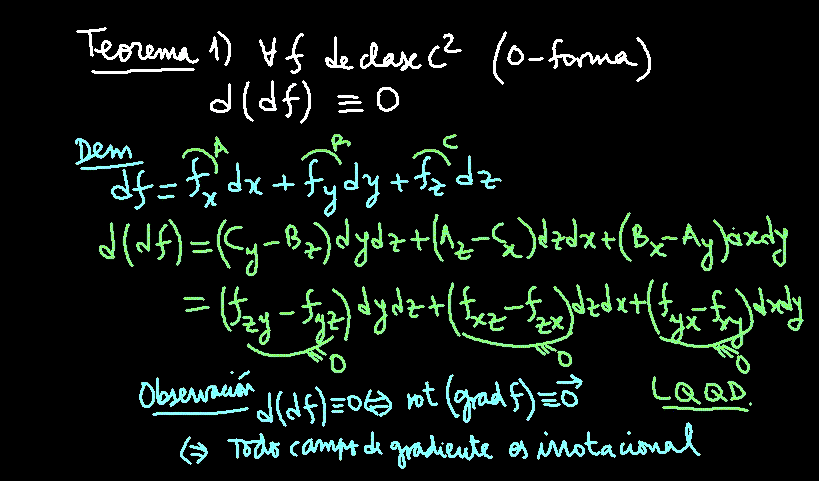 Teorema 1) ∀f de clase C² (0-forma)
d(df) ≡ 0
Dem
A B C
df = f_x dx + f_y dy + f_z dz
d(df) = (C_y - B_z) dydz + (A_z - C_x) dzdx + (B_x - A_y) dxdy
= (f_zy - f_yz) dydz + (f_xz - f_zx) dzdx + (f_yx - f_xy) dxdy
0 0 0
Observación d(df) ≡ 0 ⇔ rot(grad f) ≡ 0⃗ LQQD.
⇔ Todo campo de gradiente es irrotacional